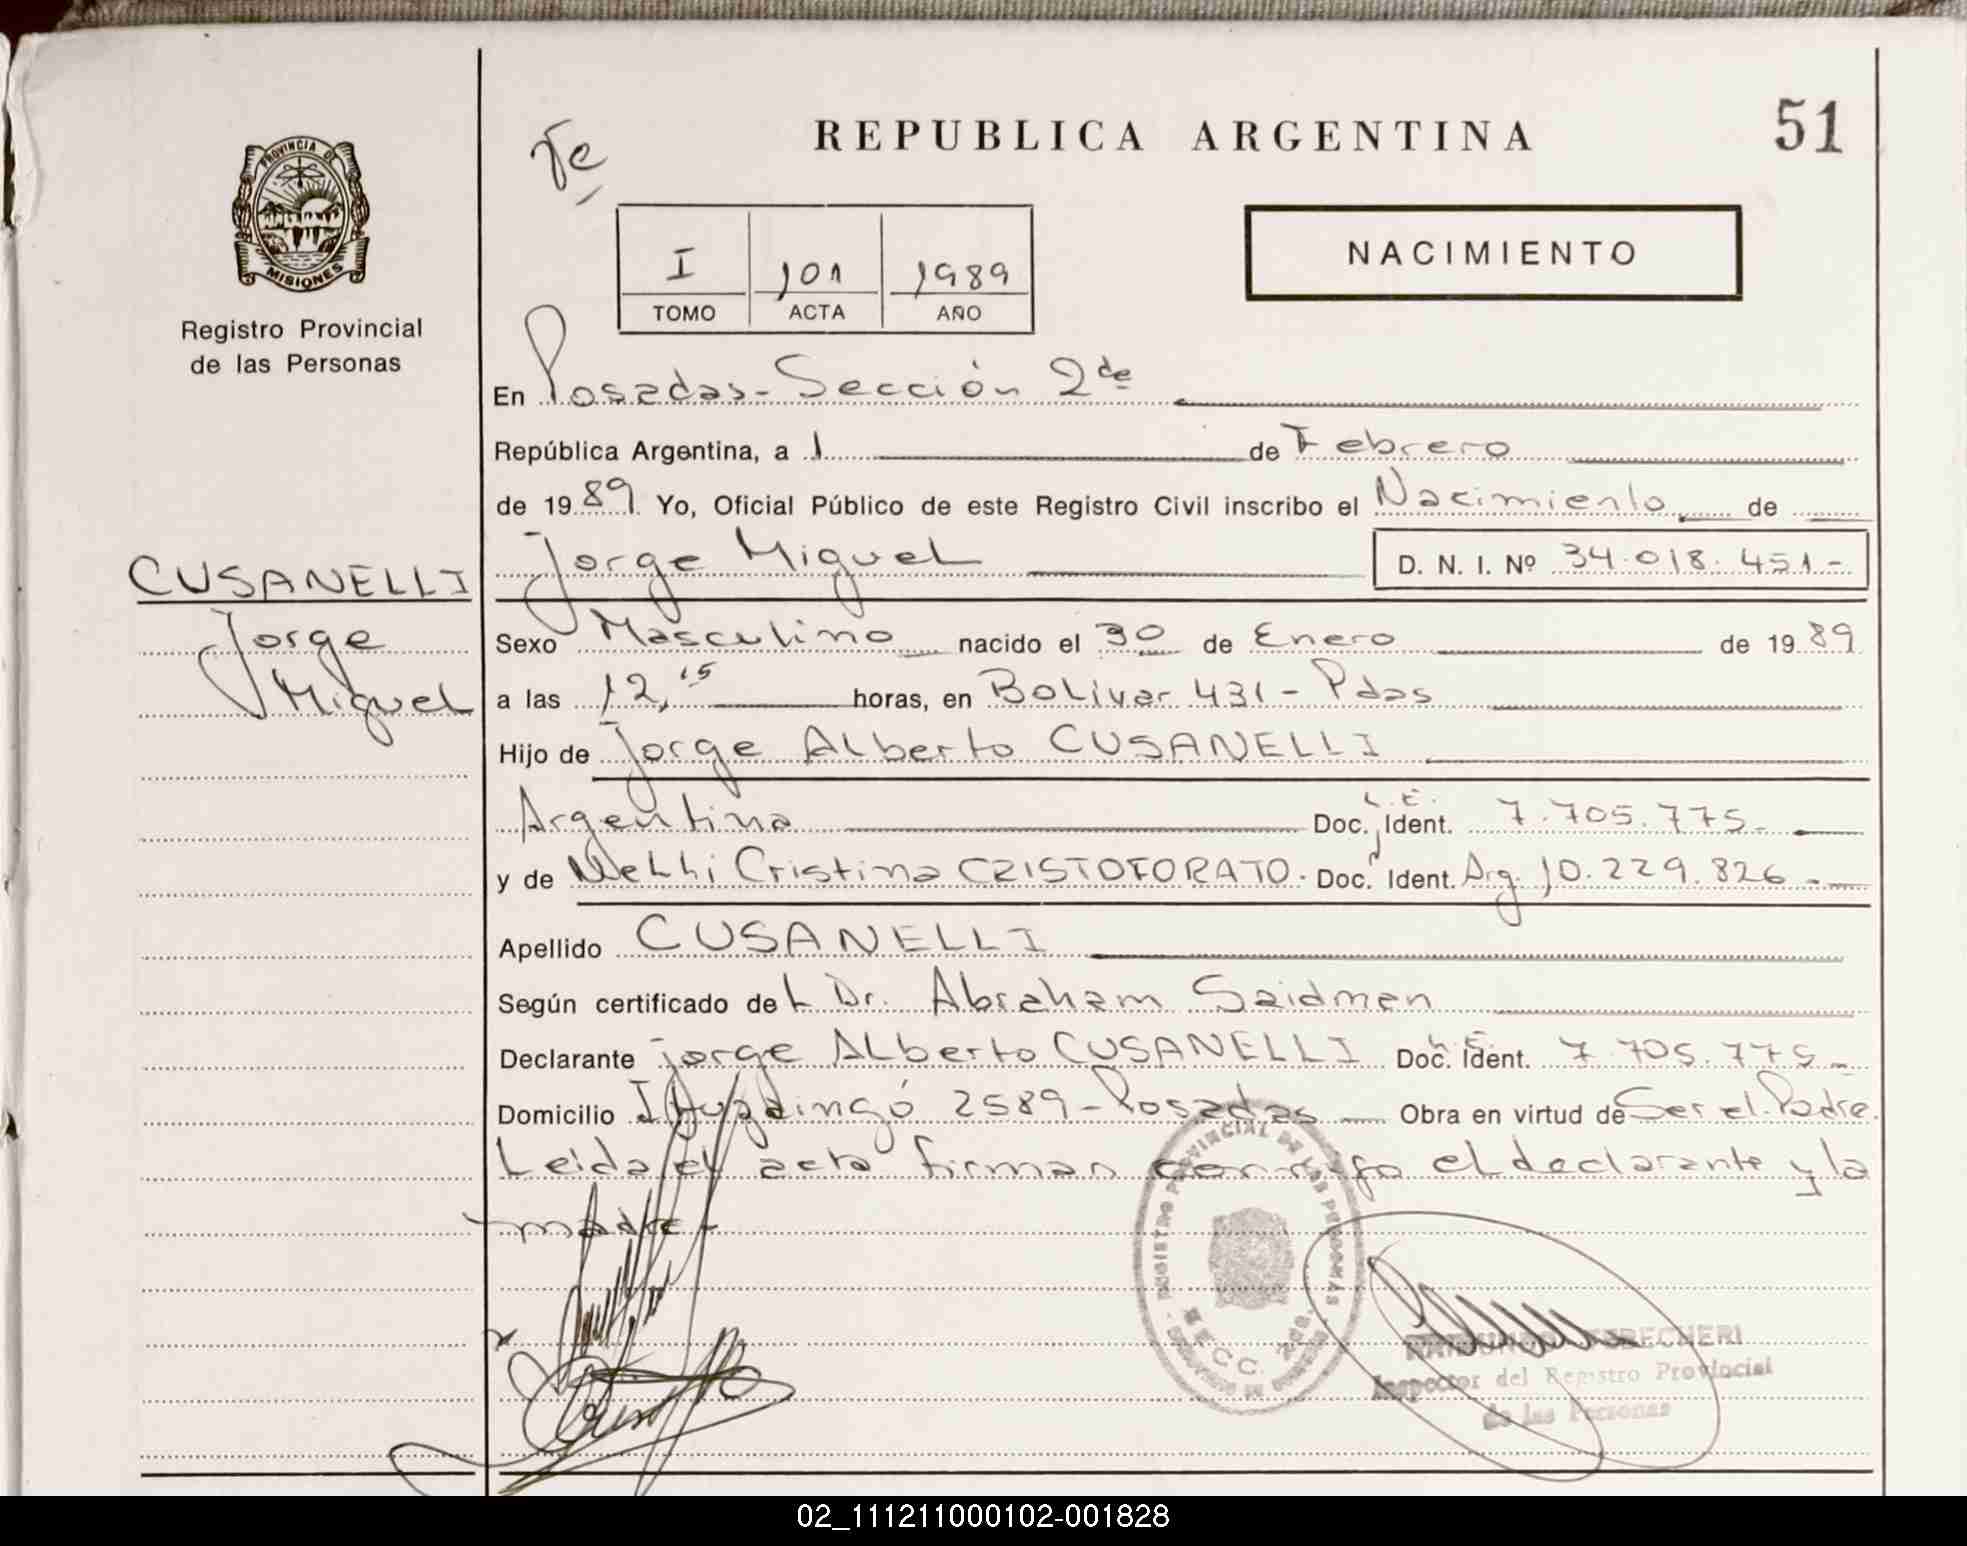 REPUBLICA ARGENTINA
51
PROVINCIA DE
MISIONES
Registro Provincial
de las Personas
I 101 1989
TOMO ACTA AÑO
NACIMIENTO
En Posadas - Sección 2da
República Argentina, a 1 de Febrero
de 1989 Yo, Oficial Público de este Registro Civil inscribo el Nacimiento de
CUSANELLI
Jorge
Miguel
Jorge Miguel D. N. I. Nº 34.018.451-
Sexo Masculino nacido el 30 de Enero de 1989
a las 12,15 horas, en Bolivar 431 - Pdas
Hijo de Jorge Alberto CUSANELLI
Argentina Doc. Ident. L.E. 7.705.775.-
y de Cristina CRISTOFORATO. Doc. Ident. Arg. 10.229.826.-
Apellido CUSANELLI
Según certificado del Dr. Abraham Saidman
Declarante Jorge Alberto CUSANELLI Doc. Ident. L.E. 7.705.775-
Domicilio Ituzaingó 2589 - Posadas Obra en virtud de Ser el Padre.
Leida el acta firman conmigo el declarante y la
madre.-
REGISTRO PROVINCIAL DE LAS PERSONAS
SECC. 2da.
Inspector del Registro Provincial
de las Personas
02_111211000102-001828